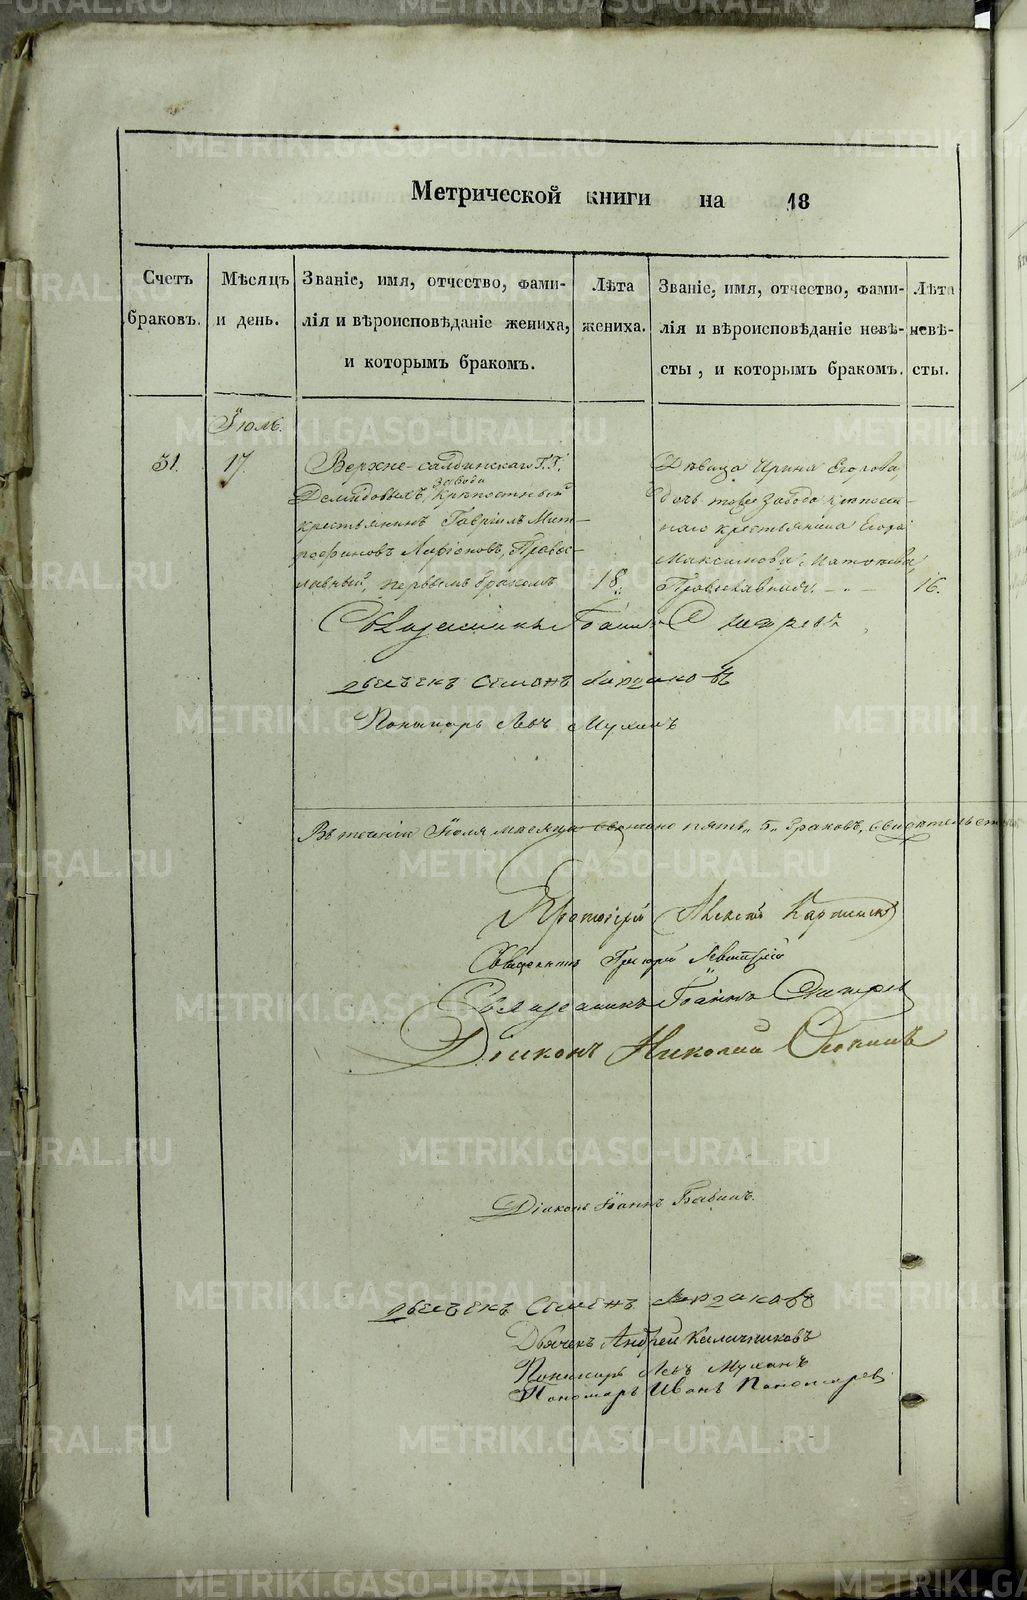 Метрической книги на 18
Счетъ браковъ.
Мѣсяцъ и день.
Званіе, имя, отчество, фами-
лія и вѣроисповѣданіе жениха,
и которымъ бракомъ.
Лѣта
жениха.
Званіе, имя, отчество, фами-
лія и вѣроисповѣданіе невѣ-
сты, и которымъ бракомъ.
Лѣта
невѣ-
сты.
Іюль.
31.
17.
Верхне-салдинскаго Г.Г.
завода
Демидовыхъ, крѣпостный
крестьянинъ Гавріилъ Мит-
рофановъ Ларіоновъ, Право-
славный, первымъ бракомъ
18.
Дѣвица Ирина Егорова,
дочь тогоже завода крѣпост-
наго крестьянина Егора
Максимова
Православная.
16.
Священникъ Іоаннъ
Дьячекъ Семенъ
Пономарь Левъ Мухинъ
Въ теченіи Іюля месяца венчано пять „5„ браковъ, свидѣтельст
Протоіерей Алексѣй
Священникъ Григорій Левитскій
Священникъ Іоаннъ
Діаконъ Николай
Діаконъ Іоаннъ Бабинъ.
Дьячекъ Семенъ
Дьячекъ Андрей Калачниковъ
Пономарь Левъ Мухинъ
Пономарь Иванъ Пономарев
METRIKI.GASO-URAL.RU